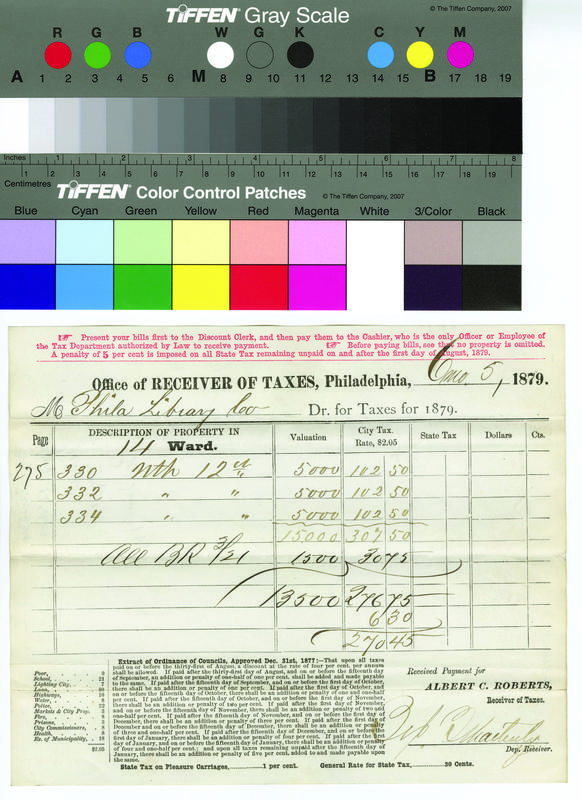 © The Tiffen Company, 2007
TIFFEN® Gray Scale
R G B W G K C Y M
A 1 2 3 4 5 6 M 8 9 10 11 12 13 14 15 B 17 18 19
Inches 1 2 3 4 5 6 7 8
Centimetres 1 2 3 4 5 6 7 8 9 10 11 12 13 14 15 16 17 18 19
TIFFEN® Color Control Patches © The Tiffen Company, 2007
Blue Cyan Green Yellow Red Magenta White 3/Color Black
☞ Present your bills first to the Discount Clerk, and then pay them to the Cashier, who is the only Officer or Employee of
the Tax Department authorized by Law to receive payment. ☞ Before paying bills, see that no property is omitted.
A penalty of 5 per cent is imposed on all State Tax remaining unpaid on and after the first day of August, 1879.
Office of RECEIVER OF TAXES, Philadelphia, 5, 1879.
M Phila Library Co Dr. for Taxes for 1879.
Page DESCRIPTION OF PROPERTY IN 14 Ward. Valuation City Tax. Rate, $2.05 State Tax Dollars Cts.
275 330 Nth 12th 5000 102 50
332 " " 5000 102 50
334 " " 5000 102 50
15000 307 50
All BR 3/21 1500 30 75
13500 276 75
6 30
270 45
Extract of Ordinance of Councils, Approved Dec. 31st, 1877:—That upon all taxes
paid on or before the thirty-first of August, a discount at the rate of four per cent. per annum
shall be allowed. If paid after the thirty-first day of August, and on or before the fifteenth day
of September, an addition or penalty of one-half of one per cent. shall be added and made payable
to the same. If paid after the fifteenth day of September, and on or before the first day of October,
there shall be an addition or penalty of one per cent. If paid after the first day of October, and
on or before the fifteenth day of October, there shall be an addition or penalty of one and one-half
per cent. If paid after the fifteenth day of October, and on or before the first day of November,
there shall be an addition or penalty of two per cent. If paid after the first day of November,
and on or before the fifteenth day of November, there shall be an addition or penalty of two and
one-half per cent. If paid after the fifteenth day of November, and on or before the first day of
December, there shall be an addition or penalty of three per cent. If paid after the first day of
December and on or before the fifteenth day of December, there shall be an addition or penalty
of three and one-half per cent. If paid after the fifteenth day of December, and on or before the first
day of January, there shall be an addition or penalty of four per cent. If paid after the first
day of January, and on or before the fifteenth day of January, there shall be an addition or penalty
of four and one-half per cent.; and upon all taxes remaining unpaid after the fifteenth day of
January, there shall be an addition or penalty of five per cent, added to and made payable upon
the same.
State Tax on Pleasure Carriages, 1 per cent. General Rate for State Tax, 30 Cents.
Poor,
School,
Lighting City,
Loan,
Highways,
Water,
Police,
Markets & City Prop.
Fire,
Prisons,
City Commissioners,
Health,
Ex. of Municipality,
$2.05
Received Payment for
ALBERT C. ROBERTS,
Receiver of Taxes.
Dep. Receiver.